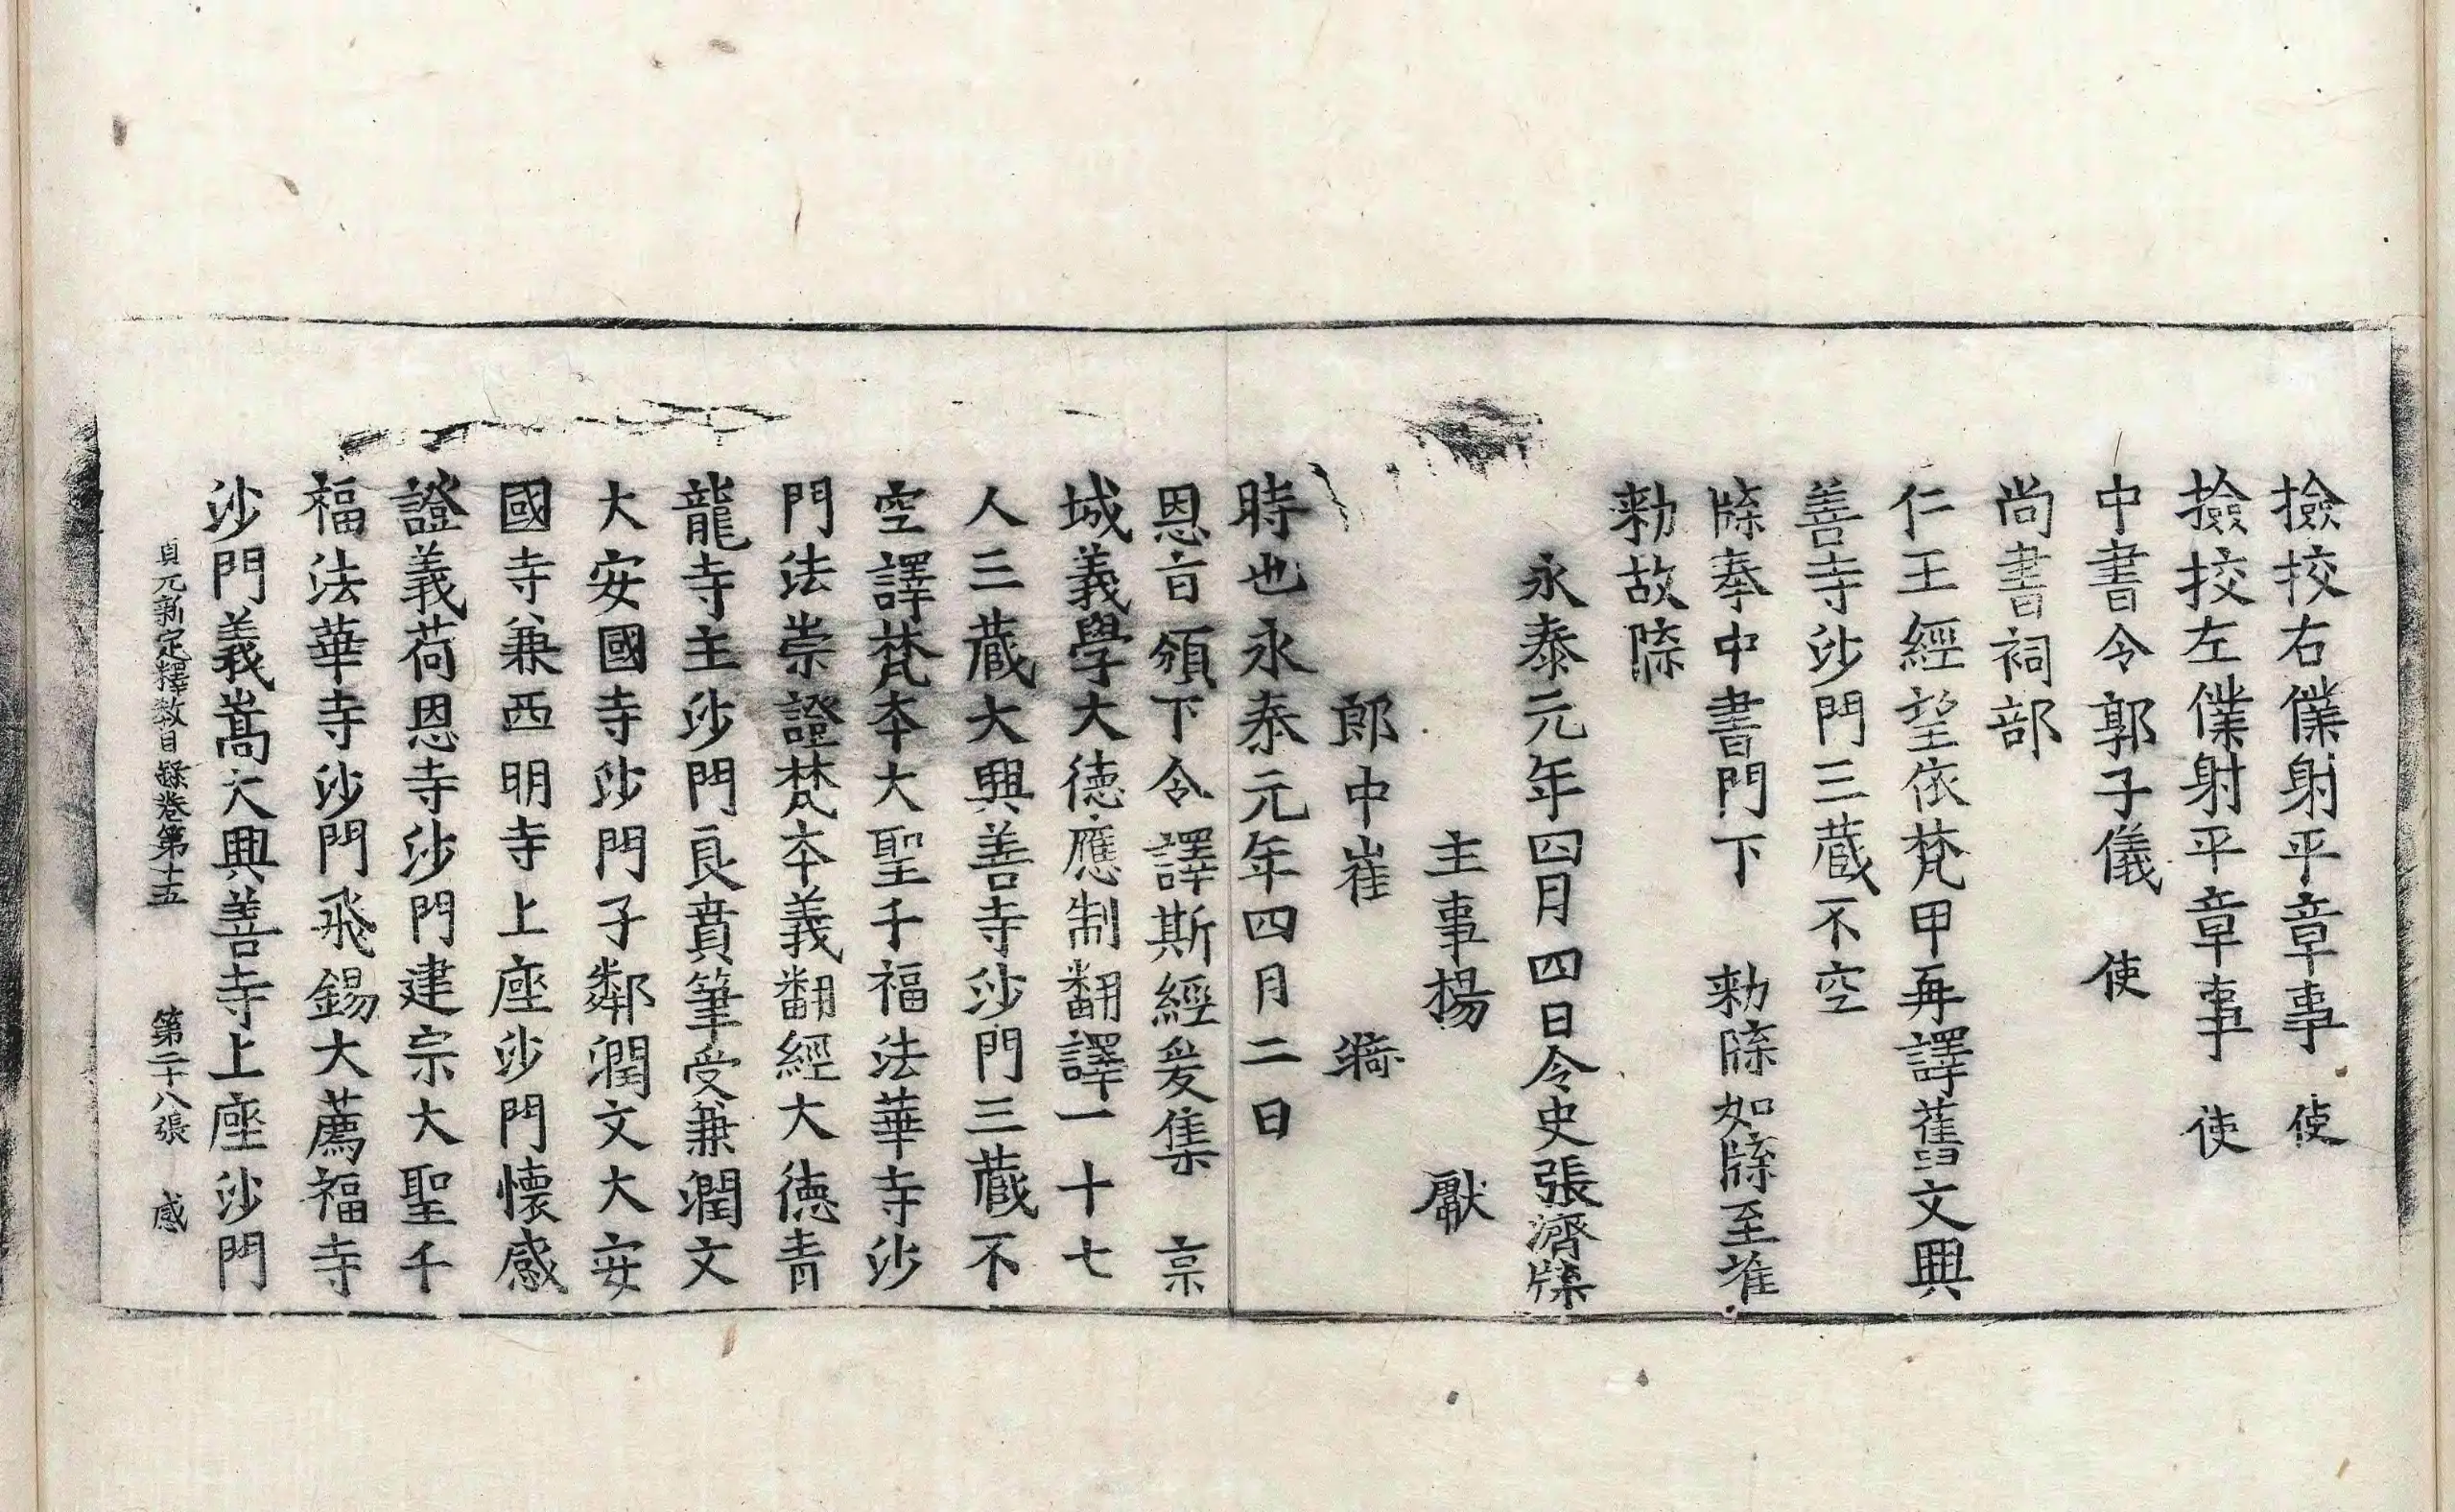 撿挍右僕射平章事 使
撿挍左僕射平章事 使
中書令郭子儀 使
尚書祠部
仁王經望依梵甲再譯舊文興
善寺沙門三藏不空
牒奉中書門下 勑牒如牒至准
勑故牒
永泰元年四月四日令史張濟牒
主事楊 獻
郎中崔 漪
時也永泰元年四月二日
恩旨頒下令譯斯經爰集 京
城義學大德應制翻譯一十七
人三藏大興善寺沙門三藏不
空譯梵本大聖千福法華寺沙
門法崇證梵本義翻經大德青
龍寺主沙門良賁筆受兼潤文
大安國寺沙門子鄰潤文大安
國寺兼西明寺上座沙門懷感
證義荷恩寺沙門建宗大聖千
福法華寺沙門飛錫大薦福寺
沙門義嵩大興善寺上座沙門
貞元新定釋教目録卷第十五 第二十八張 感